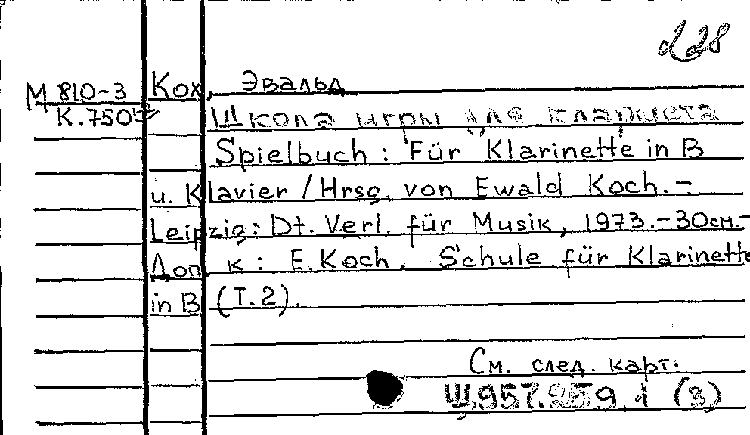 228
М 810-3 Кох, Эвальд
К.750 Школа игры для кларнета
Spielbuch: Für Klarinette in B
u. Klavier / Hrsg. von Ewald Koch. –
Leipzig: Dt. Verl. für Musik, 1973. – 30см. –
Доп к: E. Koch. Schule für Klarinette
in B (T. 2).
См. след. карт.
Щ957.259.1 (3)